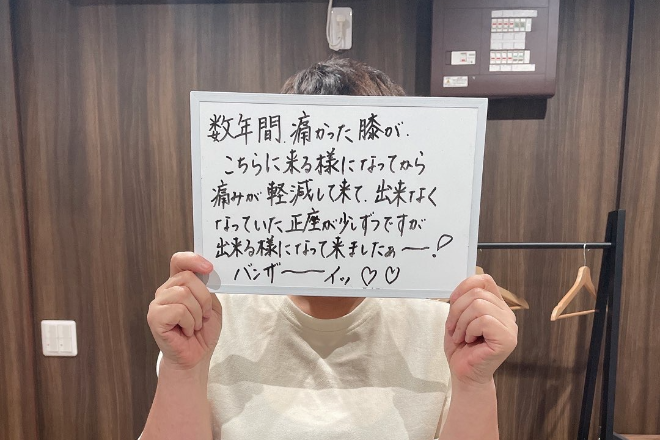 数年間、痛かった膝が、
こちらに来る様になってから
痛みが軽減して来て、出来なく
なっていた正座が少しずつですが
出来る様になって来ましたぁー!
バンザーイッ♡♡